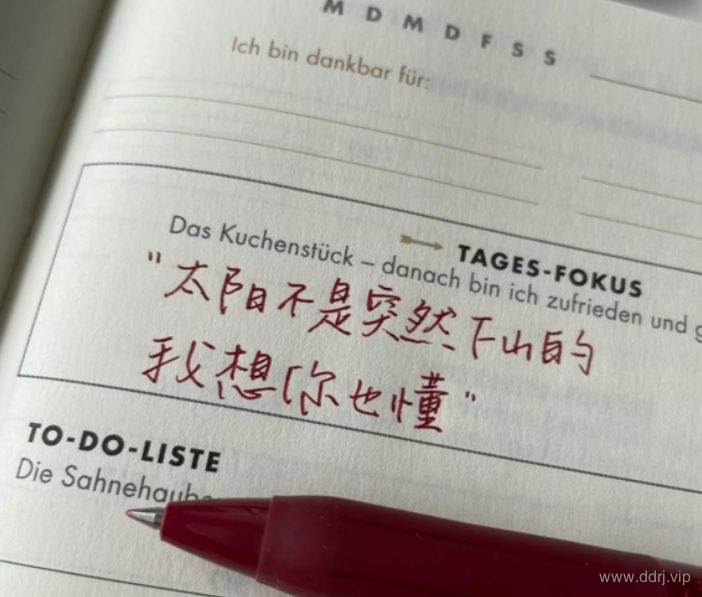 M D M D F S S
Ich bin dankbar für:
TAGES-FOKUS
Das Kuchenstück – danach bin ich zufrieden und
"太阳不是突然下山的
我想你也懂"
TO-DO-LISTE
Die Sahnehaube
www.ddrj.vip